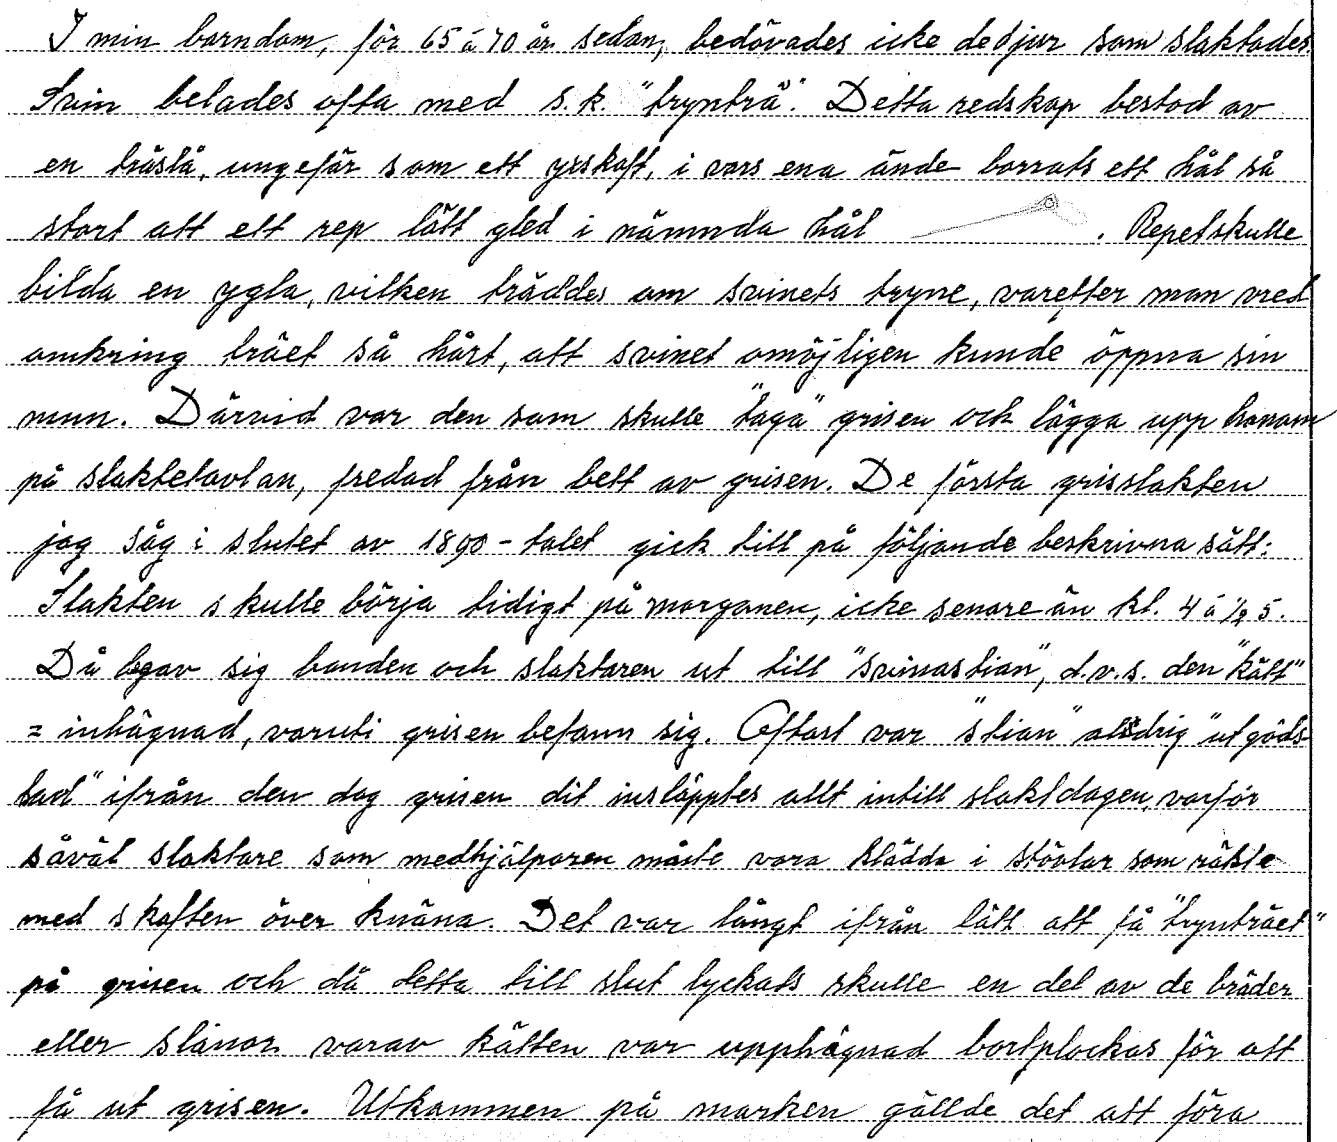 I min barndom, för 65 à 70 år sedan, bedövades icke de djur som slaktades.
Svin belades ofta med s.k. "trynträ". Detta redskap bestod av
en trästå, ungefär som ett yxskaft, i vars ena ände borrats ett hål så
stort att ett rep lätt gled i nämnda hål . Repet skulle
bilda en ygla, vilken träddes om svinets tryne, varefter man vred
omkring träet så hårt, att svinet omöjligen kunde öppna sin
mun. Därvid var den som skulle "taga" grisen och lägga upp honom
på slaktetavlan, fredad från bett av grisen. De första grisslakten
jag såg i slutet av 1890-talet gick till på följande beskrivna sätt:
Slakten skulle börja tidigt på morganen, icke senare än kl. 4 à ½ 5.
Då begav sig bonden och slaktaren ut till "svinastian", d.v.s. den "kätt"
= inhägnad, varuti grisen befann sig. Oftast var "stian" aldrig "utgöds-
lad" ifrån den dag grisen dit insläpptes allt intill slaktdagen, varför
såväl slaktare som medhjälparen måste vara klädda i stövlar som räkte
med skaften över knäna. Det var långt ifrån lätt att få "tynträet"
på grisen och då detta till slut lyckats skulle en del av de bräder
eller slånor varav kätten var upphägnad bortplockas för att
få ut grisen. Utkommen på marken gällde det att föra